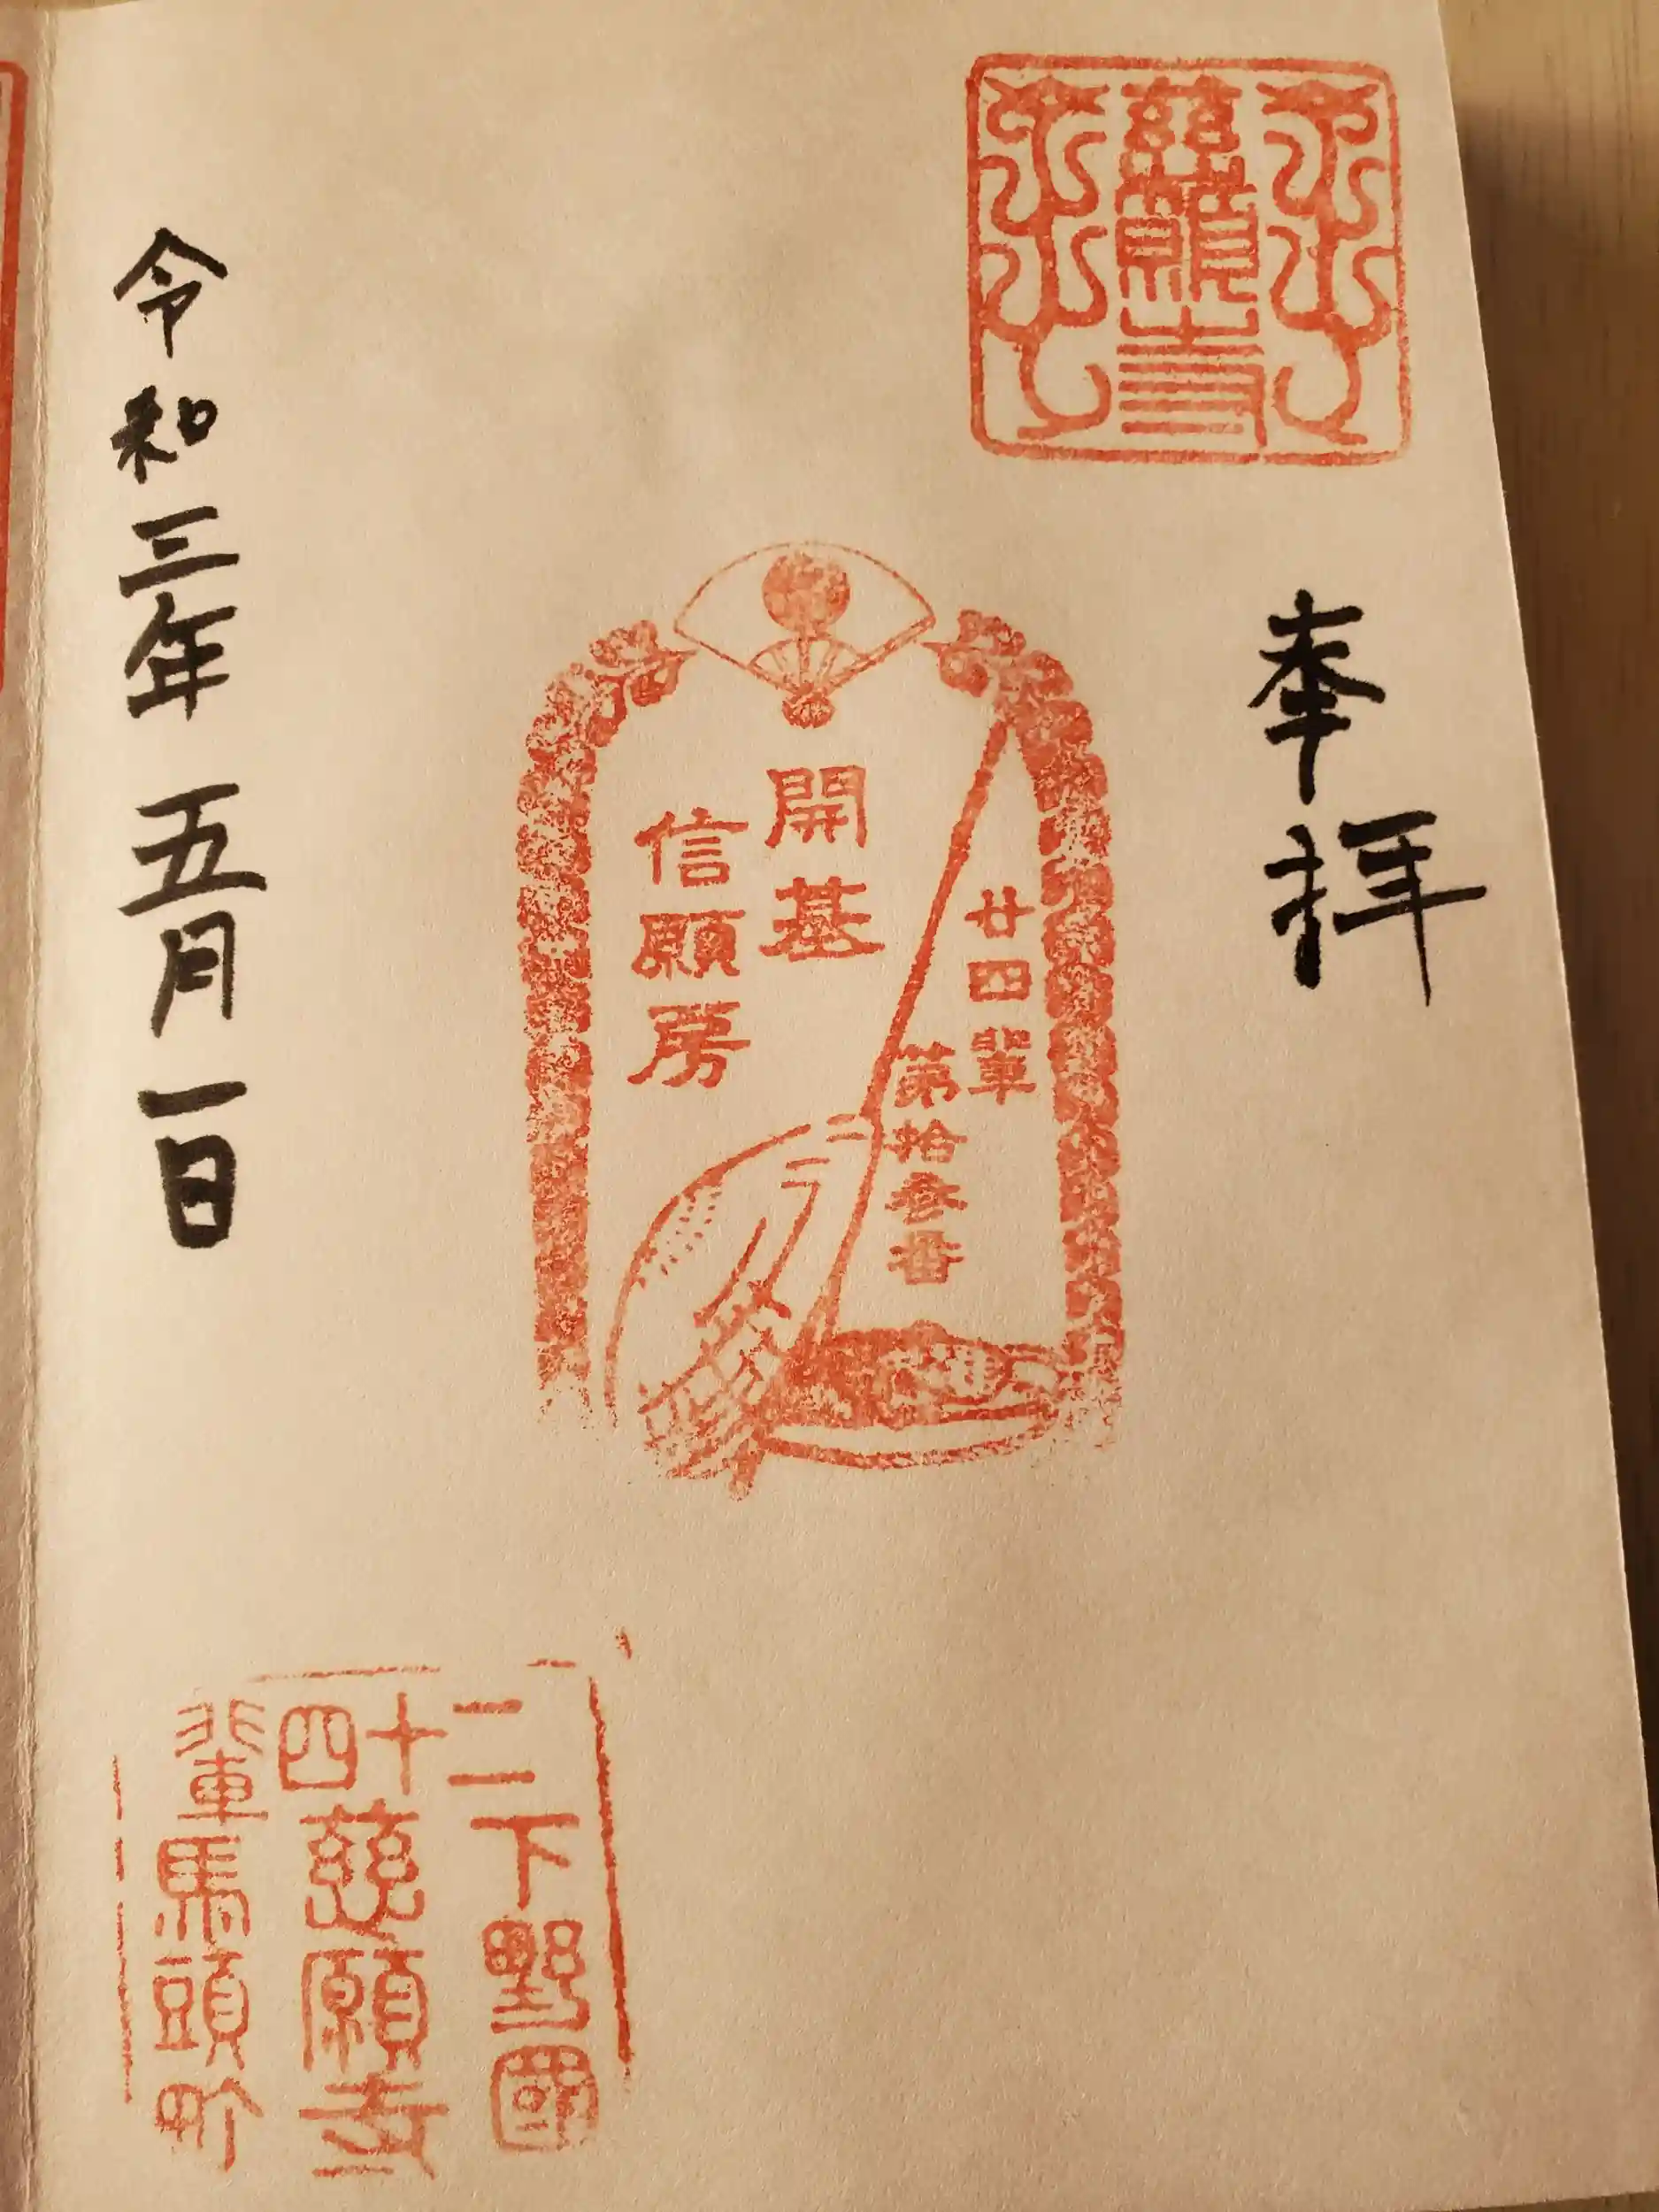 慈願寺
奉拝
廿四輩
第拾参番
開基
信願房
令和三年五月一日
二十四輩
下野國
慈願寺
馬頭町